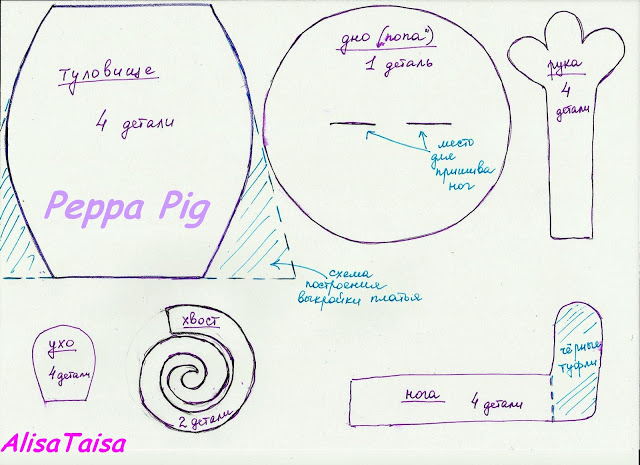 туловище
4 детали
Peppa Pig
дно ("попа")
1 деталь
место
для
пришива
ног
рука
4
детали
схема
построения
выкройки платья
ухо
4 детали
хвост
2 детали
нога 4 детали
чёрные
туфли
AlisaTaisa